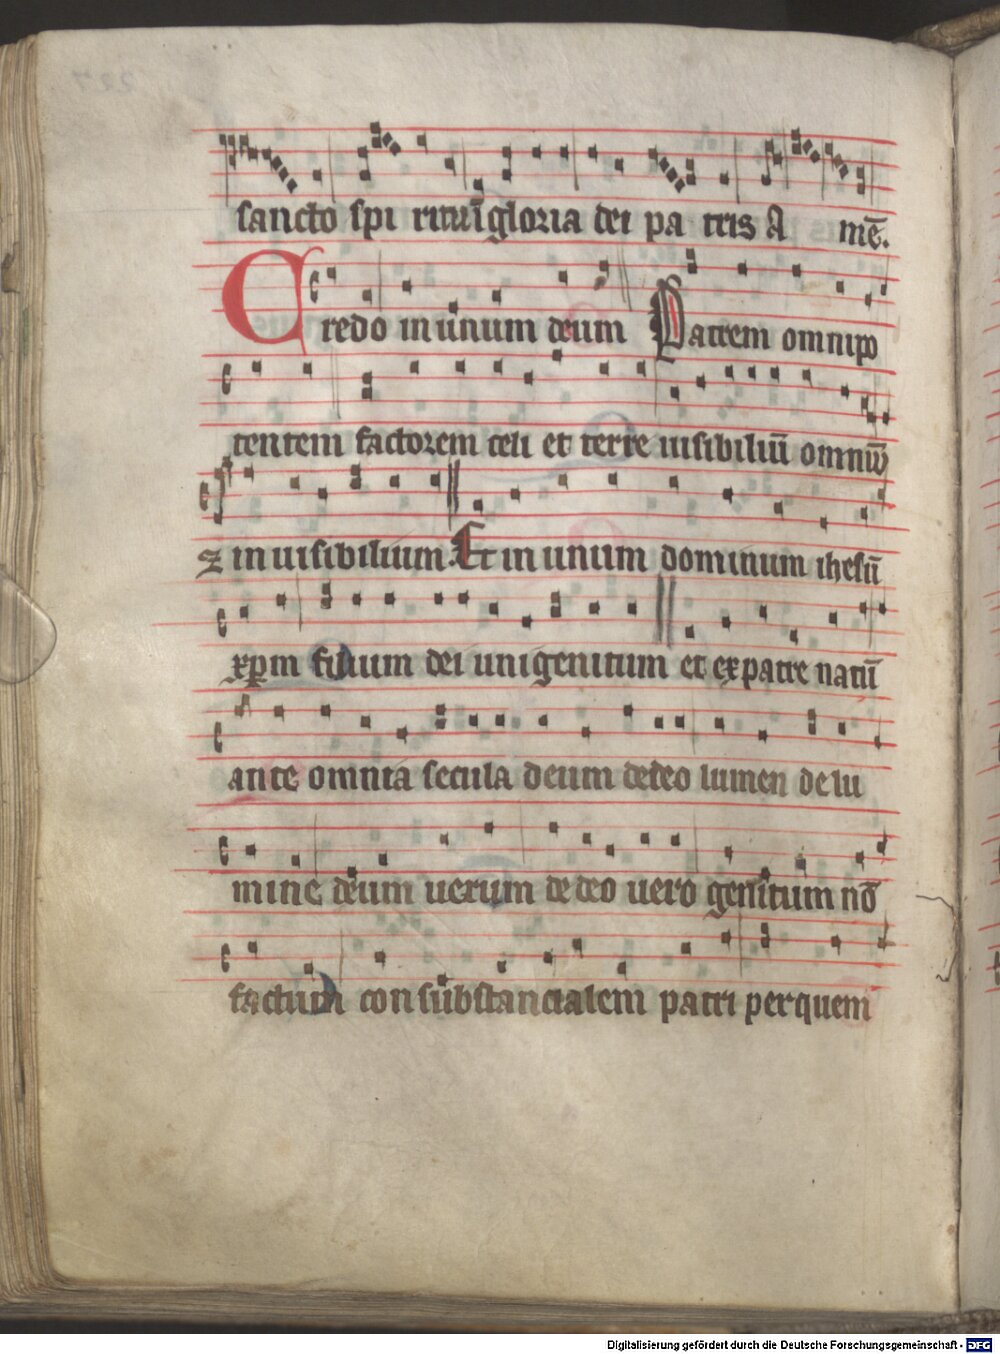 sancto spi rituī gloria dei pa tris A mē.
Credo in unum deum Patrem omnipo
tentem factorem celi et terre uisibiliū omniū
⁊ in uisibilium. Et in unum dominum ihesū
xp̄m filium dei unigenitum et ex patre natū
ante omnia secula deum de deo lumen de lu
mine deum uerum de deo uero genitum nō
factum con substancialem patri per quem
Digitalisierung gefördert durch die Deutsche Forschungsgemeinschaft - DFG